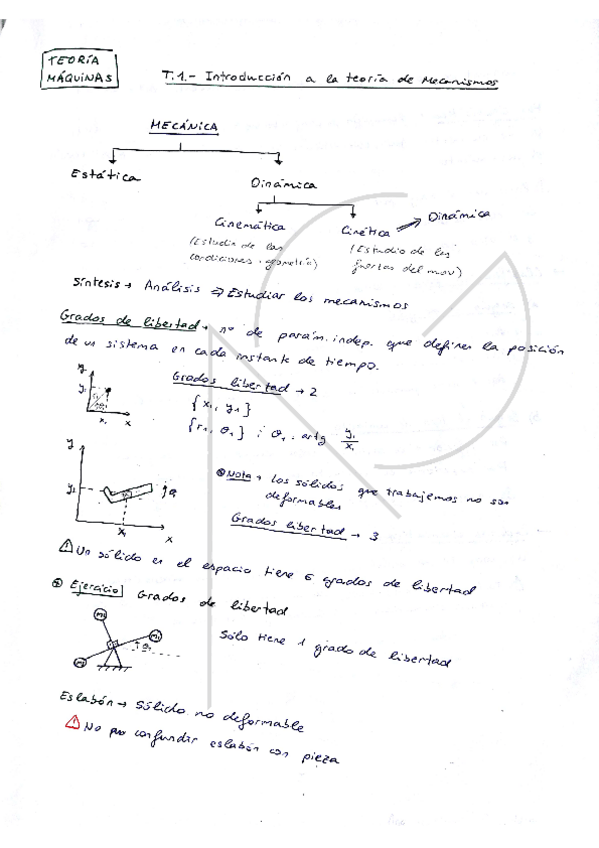 TEORÍA
MÁQUINAS
T.1.- Introducción a la teoría de Mecanismos
MECÁNICA
Estática
Dinámica
Cinemática
(Estudio de las
condiciones geometría)
Cinética → Dinámica
(Estudio de las
fuerzas del mov)
Síntesis → Análisis ⇒ Estudiar los mecanismos
Grados de libertad → nº de parám. indep. que definen la posición
de un sistema en cada instante de tiempo.
Grados libertad → 2
{x₁, y₁}
{r₁, θ₁} ; θ₁ = artg y₁/x₁
y
y₁
x₁
x
Nota → los sólidos que trabajemos no son
deformables
Grados libertad → 3
y
y₁
θ
x₁
x
⚠ Un sólido en el espacio tiene 6 grados de libertad
Ejercicio Grados de libertad
Sólo tiene 1 grado de libertad
Eslabón → Sólido no deformable
⚠ No confundir eslabón con pieza